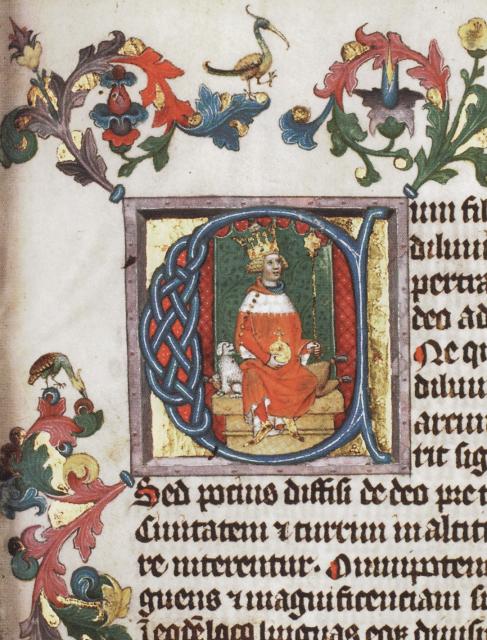 Cum fil
diluui
pertra
deo ad
Ne qu
diluui
arcum
rit sig
Sed potius diffisi de deo pre
Ciuitatem ⁊ turrim in altit
re niterentur. Omnipoten
guens ⁊ magnificenciam su
loco linguas